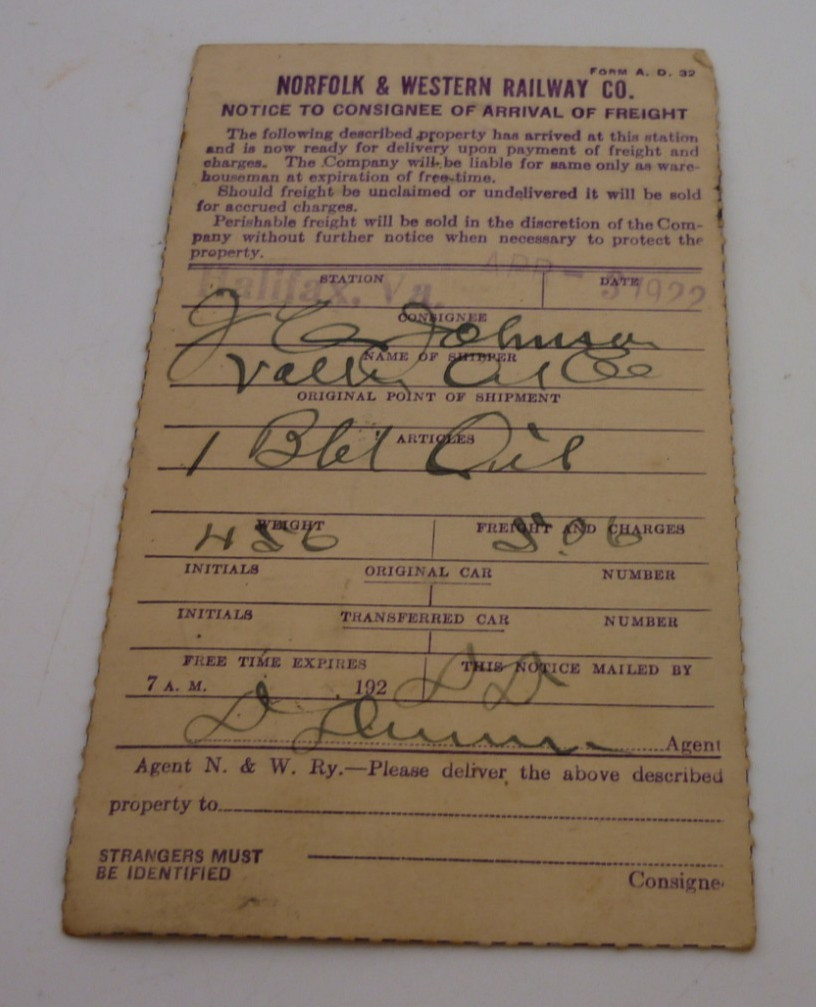 FORM A. D. 32
NORFOLK & WESTERN RAILWAY CO.
NOTICE TO CONSIGNEE OF ARRIVAL OF FREIGHT
The following described property has arrived at this station
and is now ready for delivery upon payment of freight and
charges. The Company will be liable for same only as ware-
houseman at expiration of free-time.
Should freight be unclaimed or undelivered it will be sold
for accrued charges.
Perishable freight will be sold in the discretion of the Com-
pany without further notice when necessary to protect the
property.
Halifax, Va. APR - 3 1922
STATION DATE
J C Johnson
CONSIGNEE
Valley Oil Co
NAME OF SHIPPER
ORIGINAL POINT OF SHIPMENT
1 Bbl Oil
ARTICLES
WEIGHT FREIGHT AND CHARGES
456
INITIALS ORIGINAL CAR NUMBER
INITIALS TRANSFERRED CAR NUMBER
FREE TIME EXPIRES THIS NOTICE MAILED BY
7 A. M. 192
Agent
Agent N. & W. Ry.—Please deliver the above described
property to
STRANGERS MUST
BE IDENTIFIED
Consigne